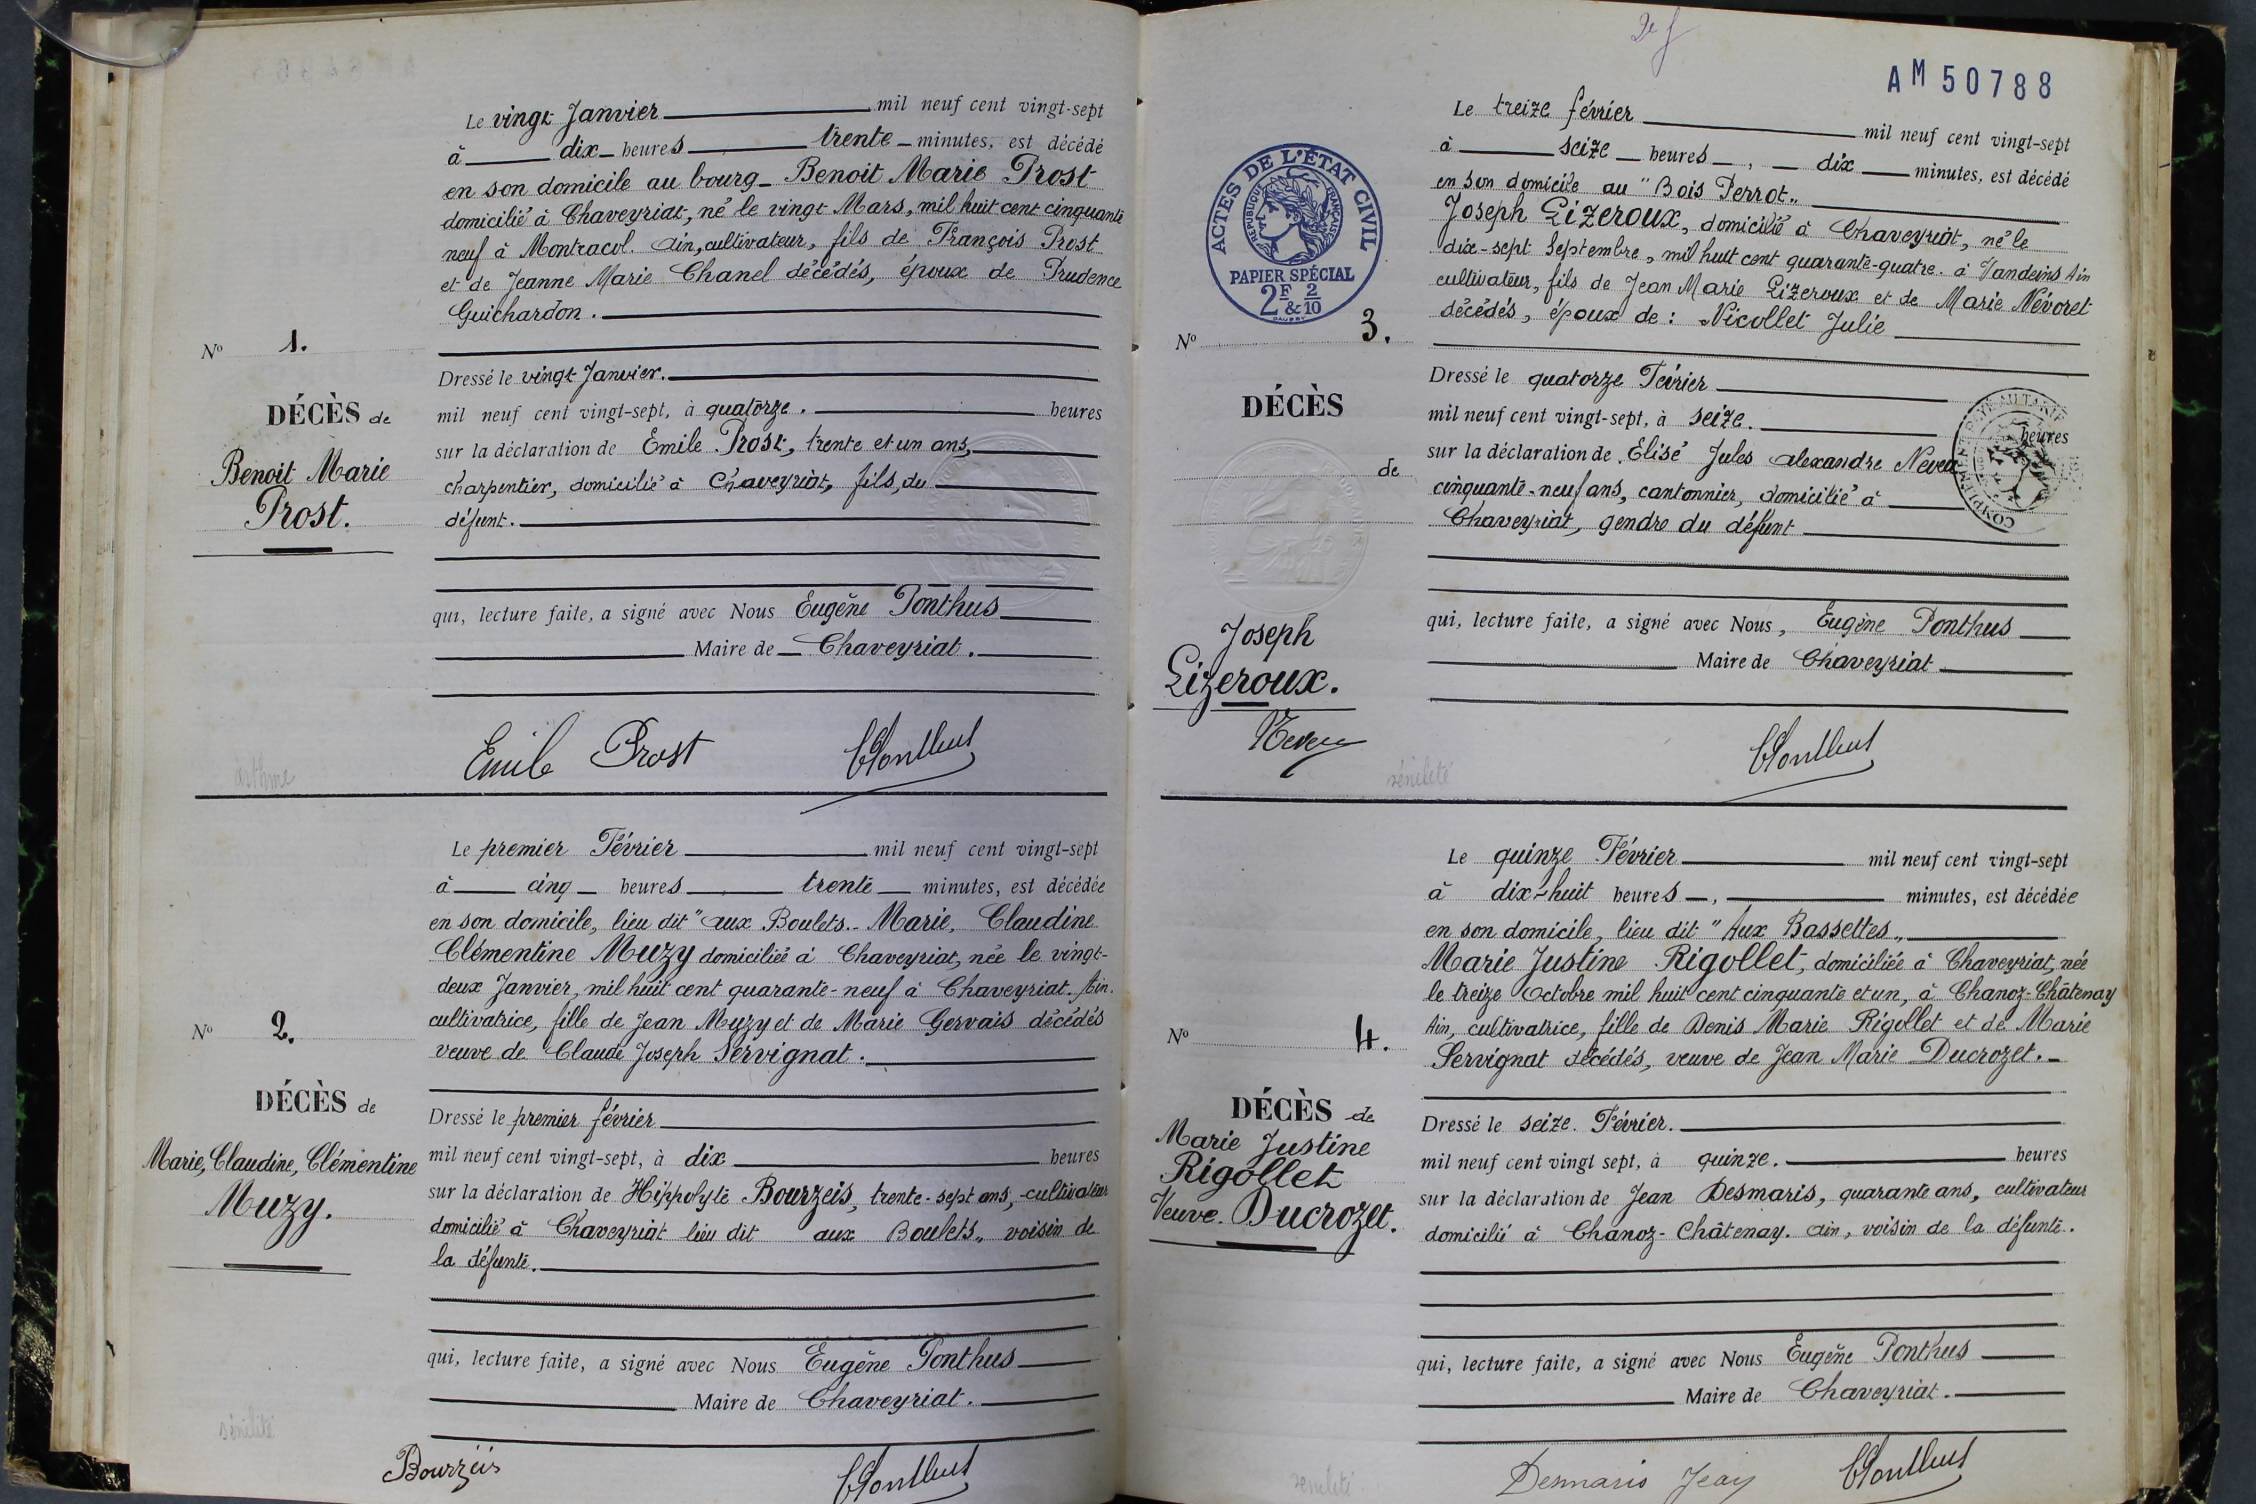 Le vingt Janvier mil neuf cent vingt-sept
à dix heures trente minutes, est décédé
en son domicile au bourg Benoit Marie Prost
domicilié à Chaveyriat, né le vingt Mars, mil huit cent cinquante
neuf à Montracol. Ain, cultivateur, fils de François Prost
et de Jeanne Marie Chanel décédés, époux de Prudence
Guichardon.
N° 1.
DÉCÈS de
Benoit Marie
Prost.
Dressé le vingt Janvier.
mil neuf cent vingt-sept, à quatorze. heures
sur la déclaration de Emile Prost, trente et un ans,
charpentier, domicilié à Chaveyriat, fils, du
défunt.
qui, lecture faite, a signé avec Nous Eugène Ponthus
Maire de Chaveyriat.
Emile Prost EPonthus
asthme
Le premier Février mil neuf cent vingt-sept
à cinq heures trente minutes, est décédée
en son domicile, lieu dit " aux Boulets.. Marie, Claudine
Clémentine Muzy domiciliée à Chaveyriat, née le vingt-
deux Janvier, mil huit cent quarante-neuf à Chaveyriat. Ain.
cultivatrice, fille de Jean Muzy et de Marie Gervais décédés
veuve de Claude Joseph Servignat.
N° 2.
DÉCÈS de
Marie, Claudine, Clémentine
Muzy.
Dressé le premier février
mil neuf cent vingt-sept, à dix heures
sur la déclaration de Hippolyte Bourzeis, trente-sept ans, cultivateur
domicilié à Chaveyriat lieu dit aux Boulets,, voisin de
la défunte.
qui, lecture faite, a signé avec Nous Eugène Ponthus
Maire de Chaveyriat.
sénilité
Bourzeis EPonthus
AM 50788
Le treize février mil neuf cent vingt-sept
à seize heures, dix minutes, est décédé
en son domicile au " Bois Perrot,,
Joseph Lizeroux, domicilié à Chaveyriat, né le
dix-sept Septembre, mil huit cent quarante-quatre. à Vandeins Ain
cultivateur, fils de Jean Marie Lizeroux et de Marie Névoret
décédés, époux de : Nicollet Julie
ACTES DE L'ÉTAT CIVIL
RÉPUBLIQUE FRANÇAISE
PAPIER SPÉCIAL
2F & 2/10
N° 3.
DÉCÈS
de
Joseph
Lizeroux.
Dressé le quatorze Février
mil neuf cent vingt-sept, à seize. heures
sur la déclaration de Elisé Jules Alexandre Neveu
cinquante-neuf ans, cantonnier, domicilié à
Chaveyriat, gendre du défunt
qui, lecture faite, a signé avec Nous, Eugène Ponthus
Maire de Chaveyriat
Neveu EPonthus
sénilité
Le quinze Février mil neuf cent vingt-sept
à dix-huit heures, minutes, est décédée
en son domicile, lieu dit " Aux Bassettes,,
Marie Justine Rigollet, domiciliée à Chaveyriat, née
le treize Octobre mil huit cent cinquante et un, à Chanoz-Châtenay
Ain, cultivatrice, fille de Denis Marie Rigollet et de Marie
Servignat décédés, veuve de Jean Marie Ducrozet.
N° 4.
DÉCÈS de
Marie Justine
Rigollet
Veuve. Ducrozet.
Dressé le seize. Février.
mil neuf cent vingt sept, à quinze. heures
sur la déclaration de Jean Desmaris, quarante ans, cultivateur
domicilié à Chanoz-Châtenay. Ain, voisin de la défunte.
qui, lecture faite, a signé avec Nous Eugène Ponthus
Maire de Chaveyriat.
senilité
Desmaris Jean EPonthus